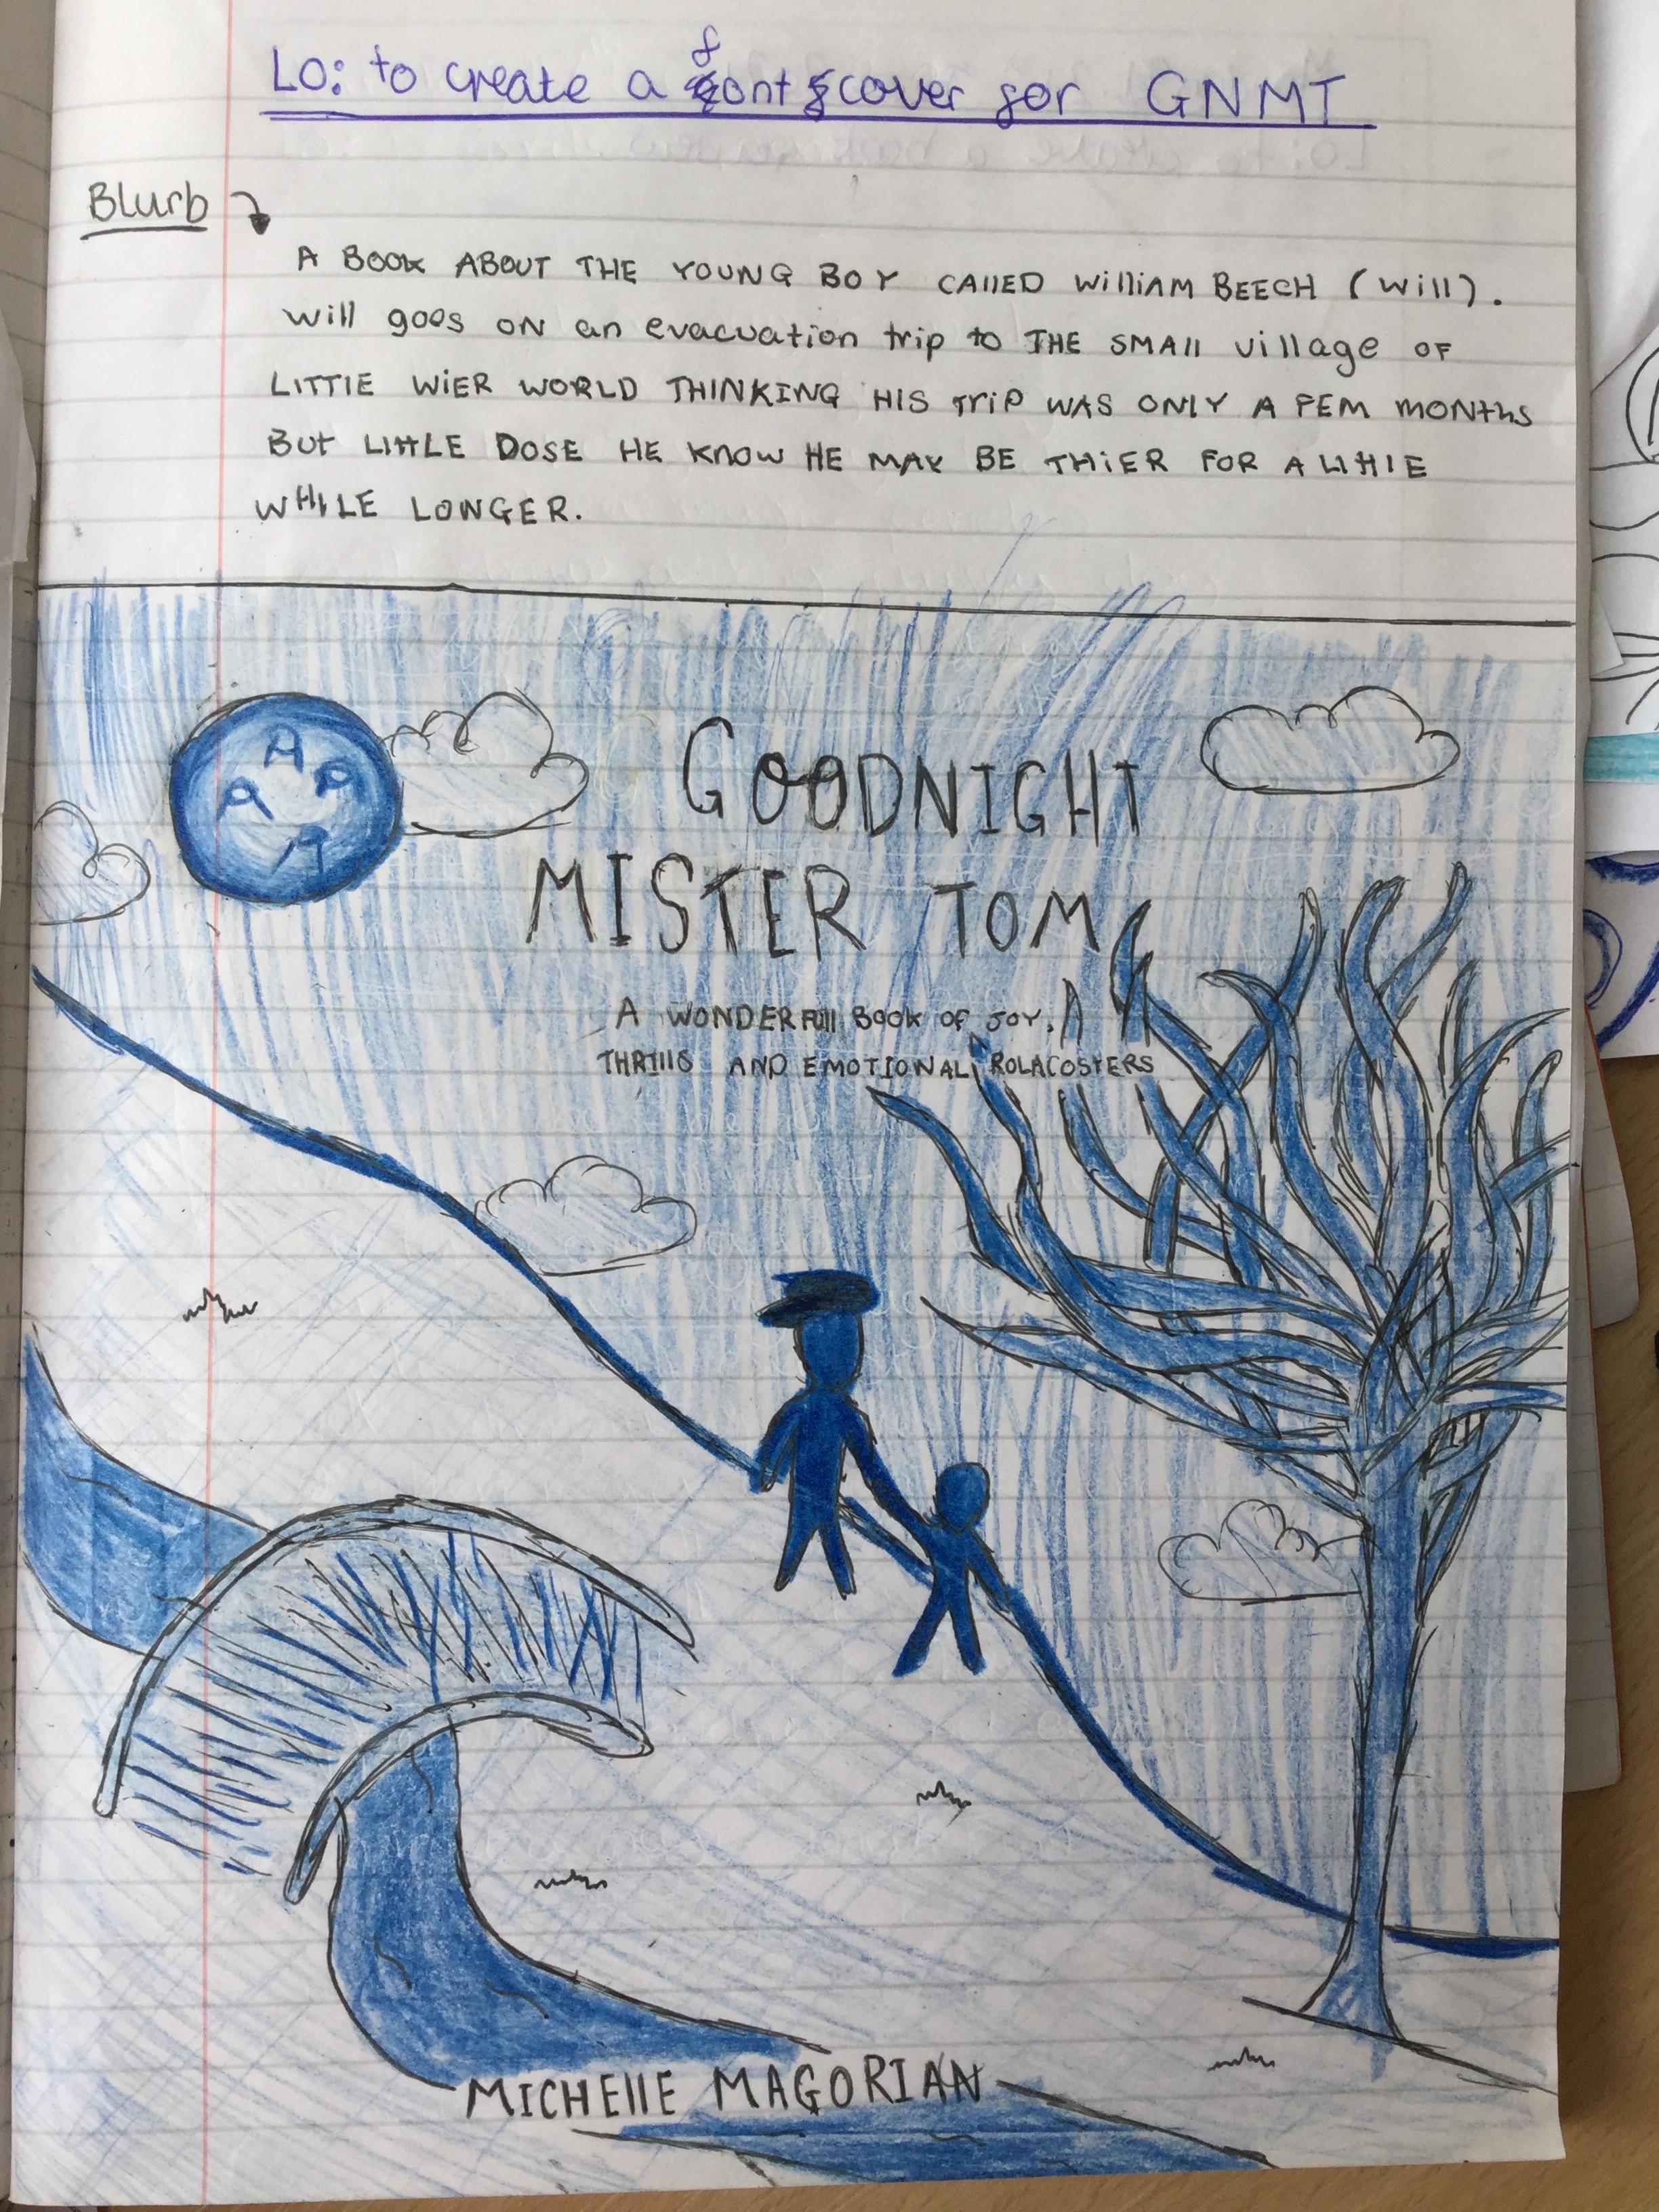 Lo: to create a font cover for GNMT
Blurb
A BOOK ABOUT THE YOUNG BOY CAllED WilliAM BEECH (Will).
Will goes ON an evacuation trip to THE SMAll village OF
LITTlE WiER WORLD THINKING HIS TriP WAS ONLY A FEM MONths
BUt LittLE DOSE HE KNOW HE MAY BE THiER FOR A LittlE
WHILE LONGER.
A A A
GOODNIGHT
MISTER TOM
A WONDERFUll BOOK OF JOY,
THRIllS AND EMOTIONAL ROLACOSTERS
MICHEllE MAGORIAN